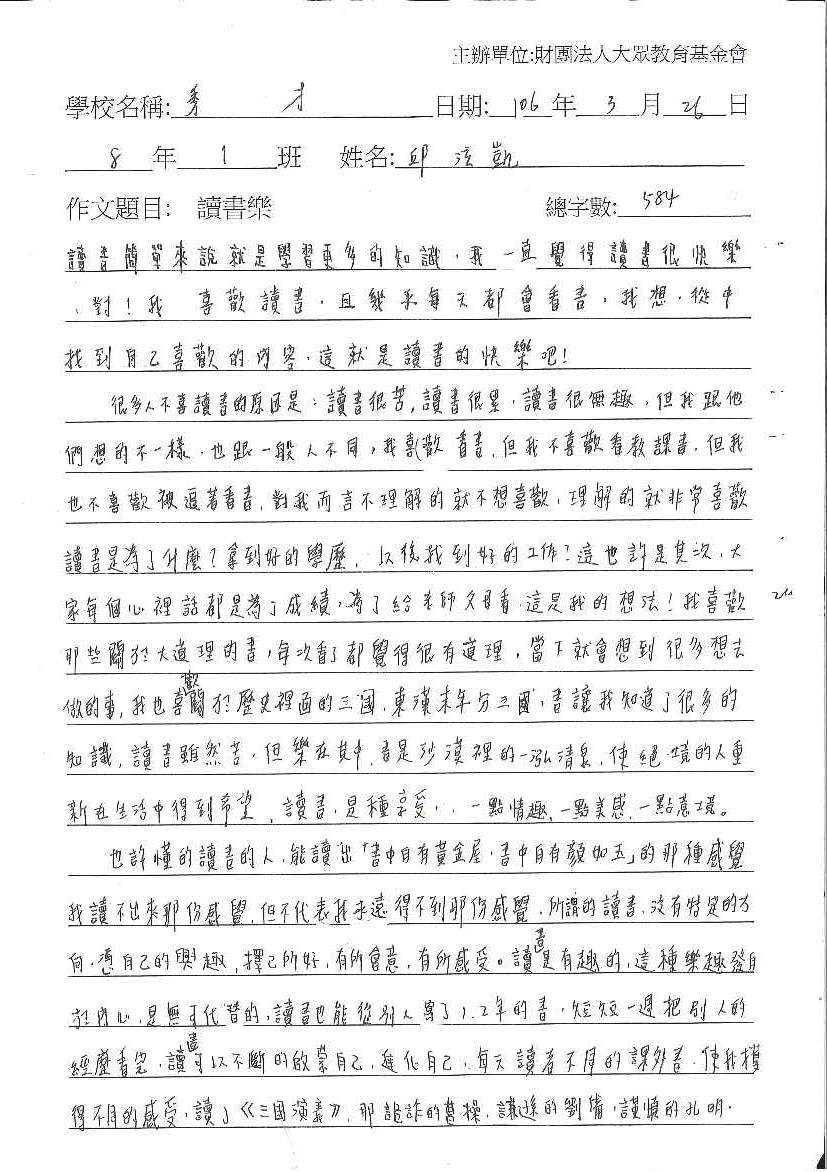 主辦單位:財團法人大眾教育基金會
學校名稱: 秀 才 日期: 106 年 3 月 26 日
8 年 1 班 姓名: 邱 泫 凱
作文題目: 讀書樂 總字數: 584
讀書簡單來說就是學習更多的知識,我一直覺得讀書很快樂
,對!我 喜歡讀書,且幾乎每天都會看書,我想,從中
找到自己喜歡的內容,這就是讀書的快樂吧!
很多人不喜讀書的原因是:讀書很苦,讀書很累,讀書很無趣,但我跟他
們想的不一樣,也跟一般人不同,我喜歡 看書,但我不喜歡看教課書,但我
也不喜歡被逼著看書,對我而言不理解的就不想喜歡,理解的就非常喜歡
讀書是為了什麼?拿到好的學歷,以後找到好的工作?這也許是其次,大
家每個心裡話都是為了成績,為了給老師父母看,這是我的想法!我喜歡
那些關於大道理的書,每次看了都覺得很有道理,當下就會想到很多想去
做的事,我也喜歡關於歷史裡面的三國,東漢末年分三國,書讓我知道了很多的
知識,讀書雖然苦,但樂在其中,書是沙漠裡的一泓清泉,使絕境的人重
新在生活中得到希望,讀書,是種享受,..一點情趣,一點美感,一點意境。
也許懂的讀書的人,能讀出「書中自有黃金屋,書中自有顏如玉」的那種感覺
我讀不出來那份感覺,但不代表我永遠得不到那份感覺,所謂的讀書,沒有特定的方
向,憑自己的興趣,擇己所好,有所會意,有所感受。讀書是有趣的,這種樂趣發自
於內心,是無可代替的,讀書也能從別人寫了1.2年的書,短短一週把別人的
經歷看完,讀書可以不斷的啟蒙自己,進化自己,每天讀著不同的課外書,使我獲
得不同的感受,讀了《三國演義》,那詭詐的曹操,謙遜的劉備,謹慎的孔明,